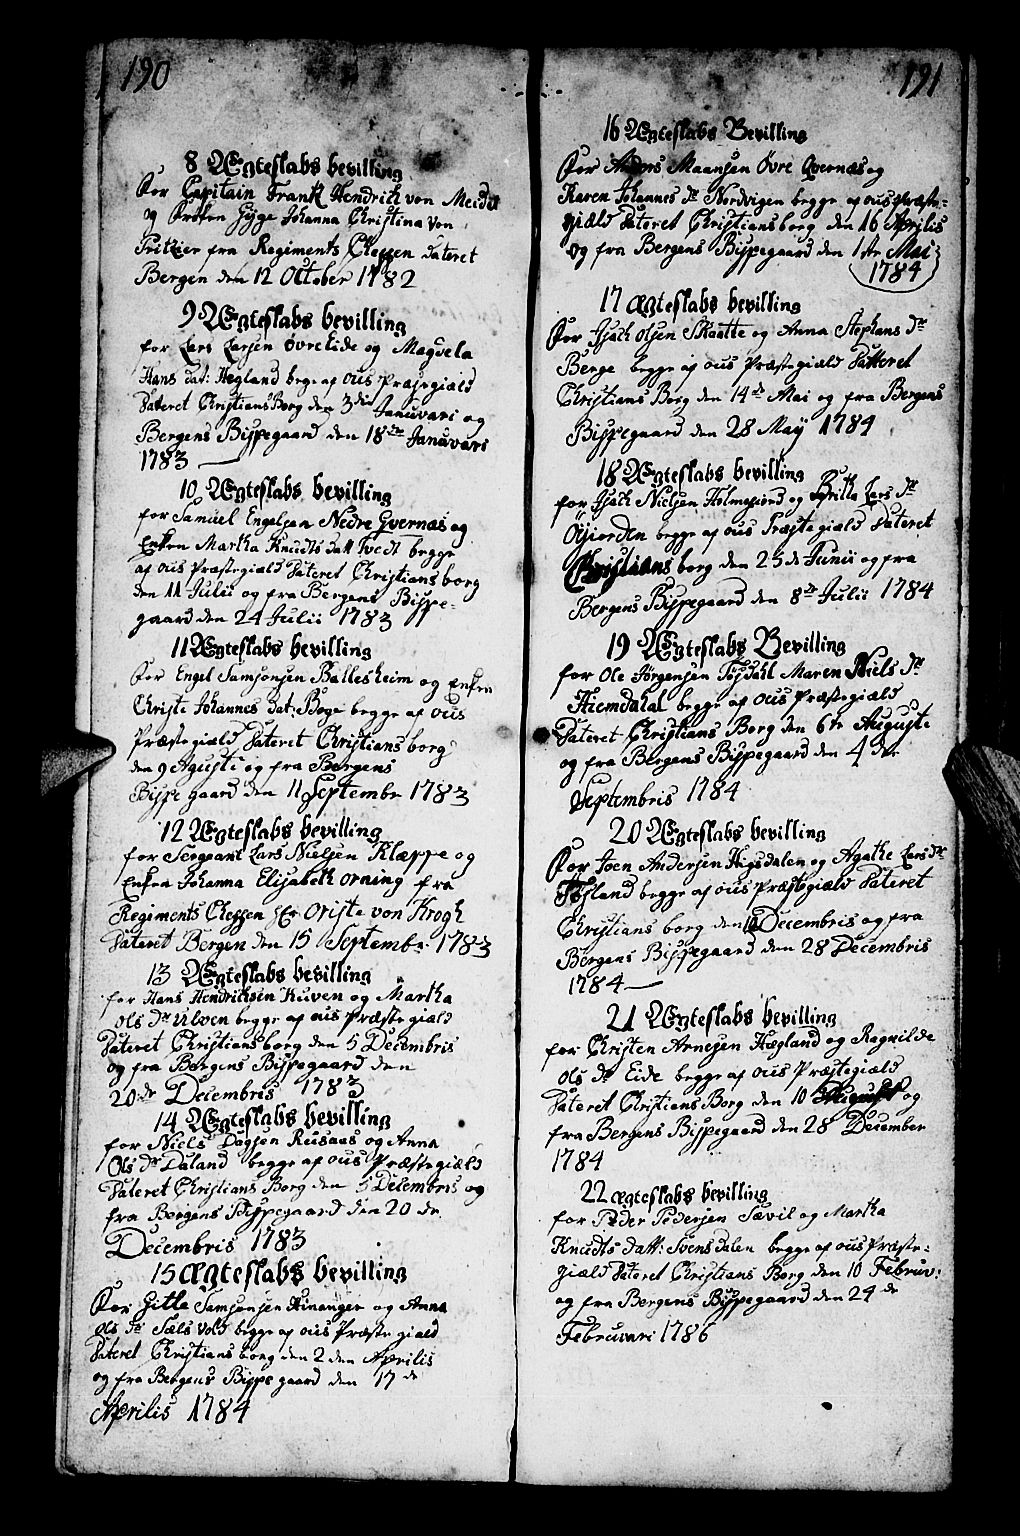 190
8 Ægteskabs bevilling
For Capitain Frank Hendrich von Meidel
og Frøken Gyge Johanna Christina von
Fritzier fra Regiments Cheffen dateret
Bergen den 12 October 1782
9 Ægteskabs bevilling
for Lars Larsen Øvre Eide og Magvela
Hans dat: Hegland begge af ous Præstegiæld
Dateret Christians Borg den 3die Januvari og
Bergens Bispegaard den 18de Januvari
1783
10 Ægteskabs bevilling
for Samuel Engelsen Nedre Qvernæs og
Enken Martha Knudts datt Tvedt begge
af ous Præstegiæld Dateret Christians borg
den 11 Julii og fra Bergens Bispe-
gaard den 24 Julii 1783
11 Ægteskabs bevilling
For Engel Samsonsen Ballesheim og Enken
Christe Johannes dat: Boge begge af ous
Præstegiæld Dateret Christians borg
den 9 Agusti og fra Bergens
Bispe gaard den 11 Septembr 1783
12 Ægteskabs bevilling
for Sergeant Lars Nielsen Klæppe og
Enken Johanna Elisabeth Orning fra
Regiments Cheffen Hr Oriste von Krogh
Dateret Bergen den 15 Septembr: 1783
13 Ægteskabs bevilling
for Hans Hendrichsen Kuven og Martha
Ols dtr Ulven begge af ous Præstegiæld
Dateret Christians borg den 5 Decembris
og fra Bergens Bispegaard den
20de Decembris 1783
14 Ægteskabs bevilling
for Niels Dagsen Reisaas og Anna
Ols dtr Daland begge af ous Præstegiæld
Dateret Christians Borg den 5 Decembris og
fra Bergens Bispegaard den 20 de
Decembris 1783
15 Ægteskabs bevilling
For Gitle Samsonsen Qvinanger og Anna
Ols dtr Sælsvold begge af ous Præstegiæld
Dateret Christians borg den 2 den Aprilis
og fra Bergens Bispe gaard den 17 de
Aprilis 1784
191
16 Ægteskabs Bevilling
For Anders Maansen Øvre Qvernæs og
Karen Johannes dtr Nordvigen begge af ous Præste-
giæld Dateret Christiansborg den 16 Aprilis
og fra Bergens Bispegaard den 1ste Mai
1784
17 Ægteskabs bevilling
For Isach Olsen Skaatte og Anna Stephans dtr
Berge begge af ous Præstegiæld Datteret
Christians Borg den 14de Mai og fra Bergens
Bispegaard den 28 May 1784
18 Ægteskabs bevilling
for Isach Nielsen Holmefiord og Britta Lars dtr
Øfierden begge af ous Præstegiæld Dateret
Christians borg den 25 de Junii og fra
Bergens Bispegaard den 8de Julii 1784
19 Ægteskabs Bevilling
for Ole Jørgensen Tøsdahl Maren Niels dtr
Hiemdahl begge af ous Præstegiæld
Dateret Christians Borg den 6te Auguste
og fra Bergens Bispegaard den 4 de
Septembris 1784
20 Ægteskabs bevilling
For Joen Andersen Hegsdalen og Agathe Lars dtr
Tøsland begge af ous Præstegiæld Dateret
Christians borg den 10 Decembris og fra
Bergens Bispegaard den 28 Decembris
1784
21 Ægteskabs bevilling
for Christen Arnesen Hægland og Ragnilde
Ols dtr Eide begge af ous Præstegiæld
Dateret Christians Borg den 10 August og
fra Bergens Bispegaard den 28 December
1784
22 Ægteskabs bevilling
for Peder Pedersen Sævil og Martha
Knudts datt: Svensdalen begge af ous Præste-
giæld Dateret Christians Borg den 10 Februv:
og fra Bergens Bispegaard den 24 de
Februvari 1786